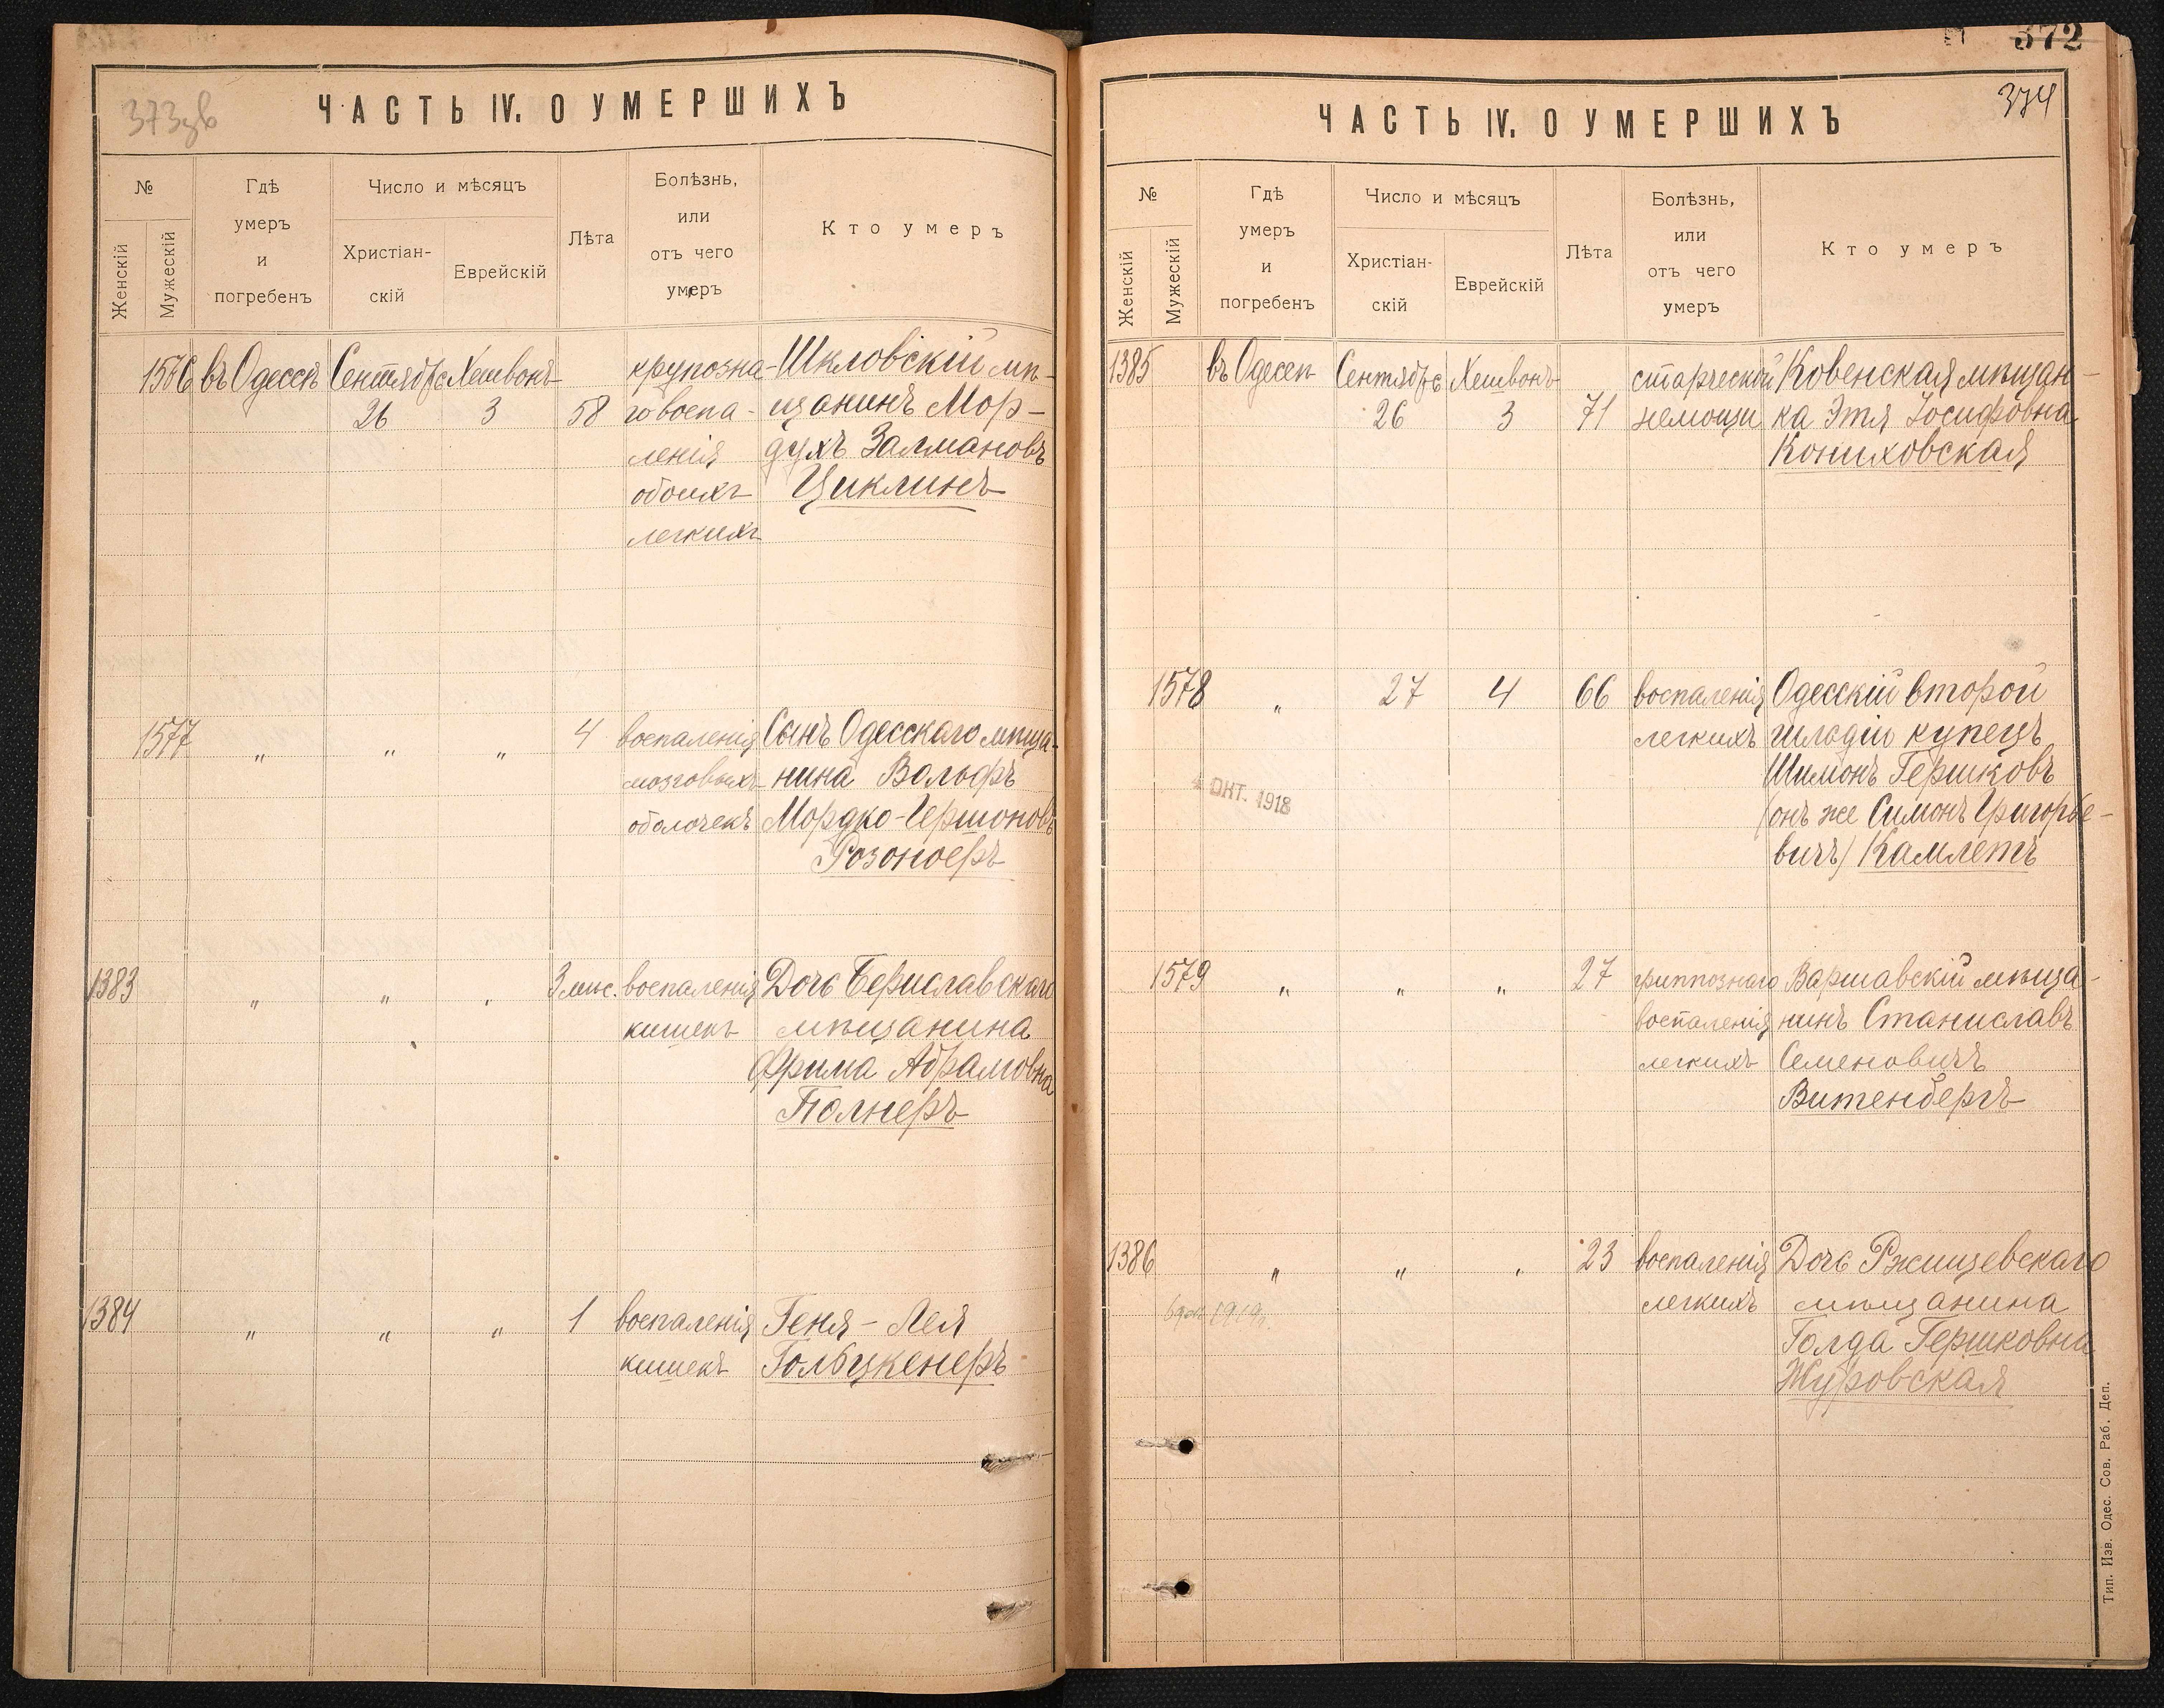 373зв
ЧАСТЬ IV. О УМЕРШИХЪ
№
Женскій
Мужескій
Гдѣ
умеръ
и
погребенъ
Число и мѣсяцъ
Христіан-
скій
Еврейскій
Лѣта
Болѣзнь,
или
отъ чего
умеръ
Кто умеръ
1576 въ Одессѣ Сентябрь Хешвонъ крупозна- Шкловскій мѣ-
26 3 58 го воспа- щанинъ Мор-
ленія духъ Залмановъ
обоихъ Циклинъ
легкихъ
1577 " " " 4 воспаленія Сынъ Одесскаго мѣща-
мозговыхъ нина Вольфъ
оболочекъ Мордко-Гершоновъ
Розоноеръ
1383 " " " 3 мѣс. воспаленія Дочь Бериславскаго
кишекъ мѣщанина
Фрима Абрамовна
Полнеръ
1384 " " " 1 воспаленія Геня - Лея
кишекъ Голбцкенеръ
372
374
ЧАСТЬ IV. О УМЕРШИХЪ
№
Женскій
Мужескій
Гдѣ
умеръ
и
погребенъ
Число и мѣсяцъ
Христіан-
скій
Еврейскій
Лѣта
Болѣзнь,
или
отъ чего
умеръ
Кто умеръ
1385 въ Одессѣ Сентябрь Хешвонъ старческой Ковенская мѣщан-
26 3 71 немощи ка Этя Іосифовна
Кониховская
1578 " 27 4 66 воспаленія Одесскій второй
легкихъ гильдіи купецъ
Шимонъ Гершковъ
4 ОКТ. 1918
(онъ же Симонъ Григорье-
вичъ) Камлетъ
1579 " " " 27 гриппознаго Варшавскій мѣща-
воспаленія нинъ Станиславъ
легкихъ Семеновичъ
Витенбергъ
1386 " " " 23 воспаленія Дочь Ржищевскаго
легкихъ мѣщанина
1919г.
Голда Гершковна
Журовская
Тип. Изв. Одес. Сов. Раб. Деп.